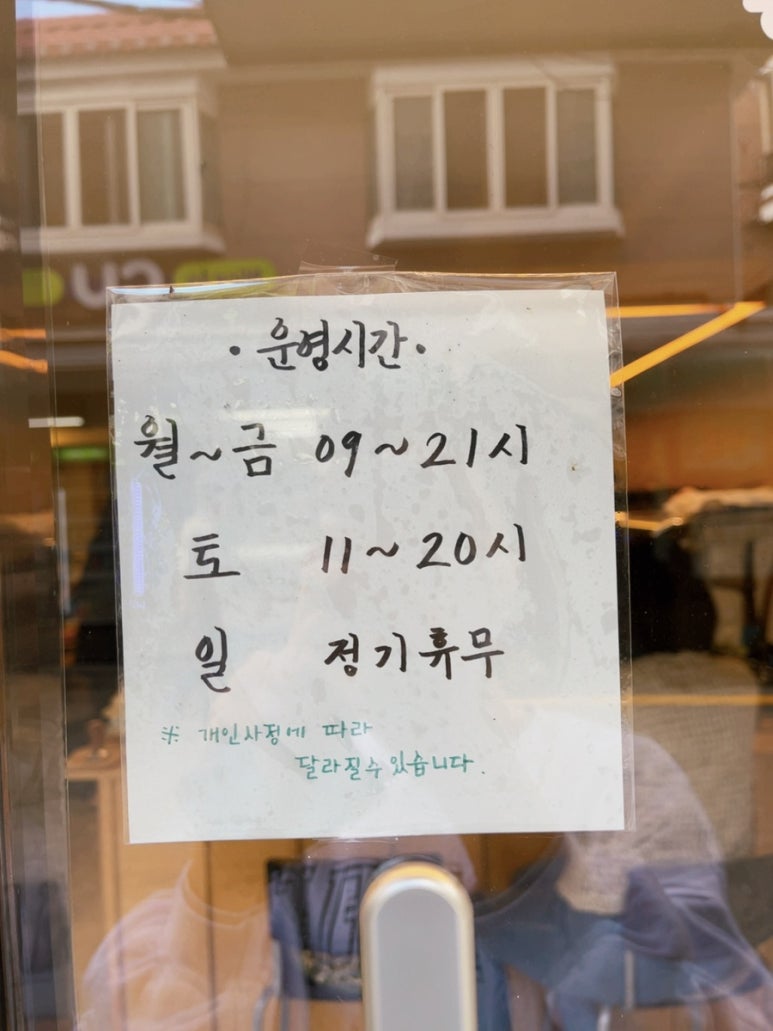 · 운영시간 ·
월~금 09~21시
토 11~20시
일 정기휴무
※ 개인사정에 따라
달라질수있습니다.